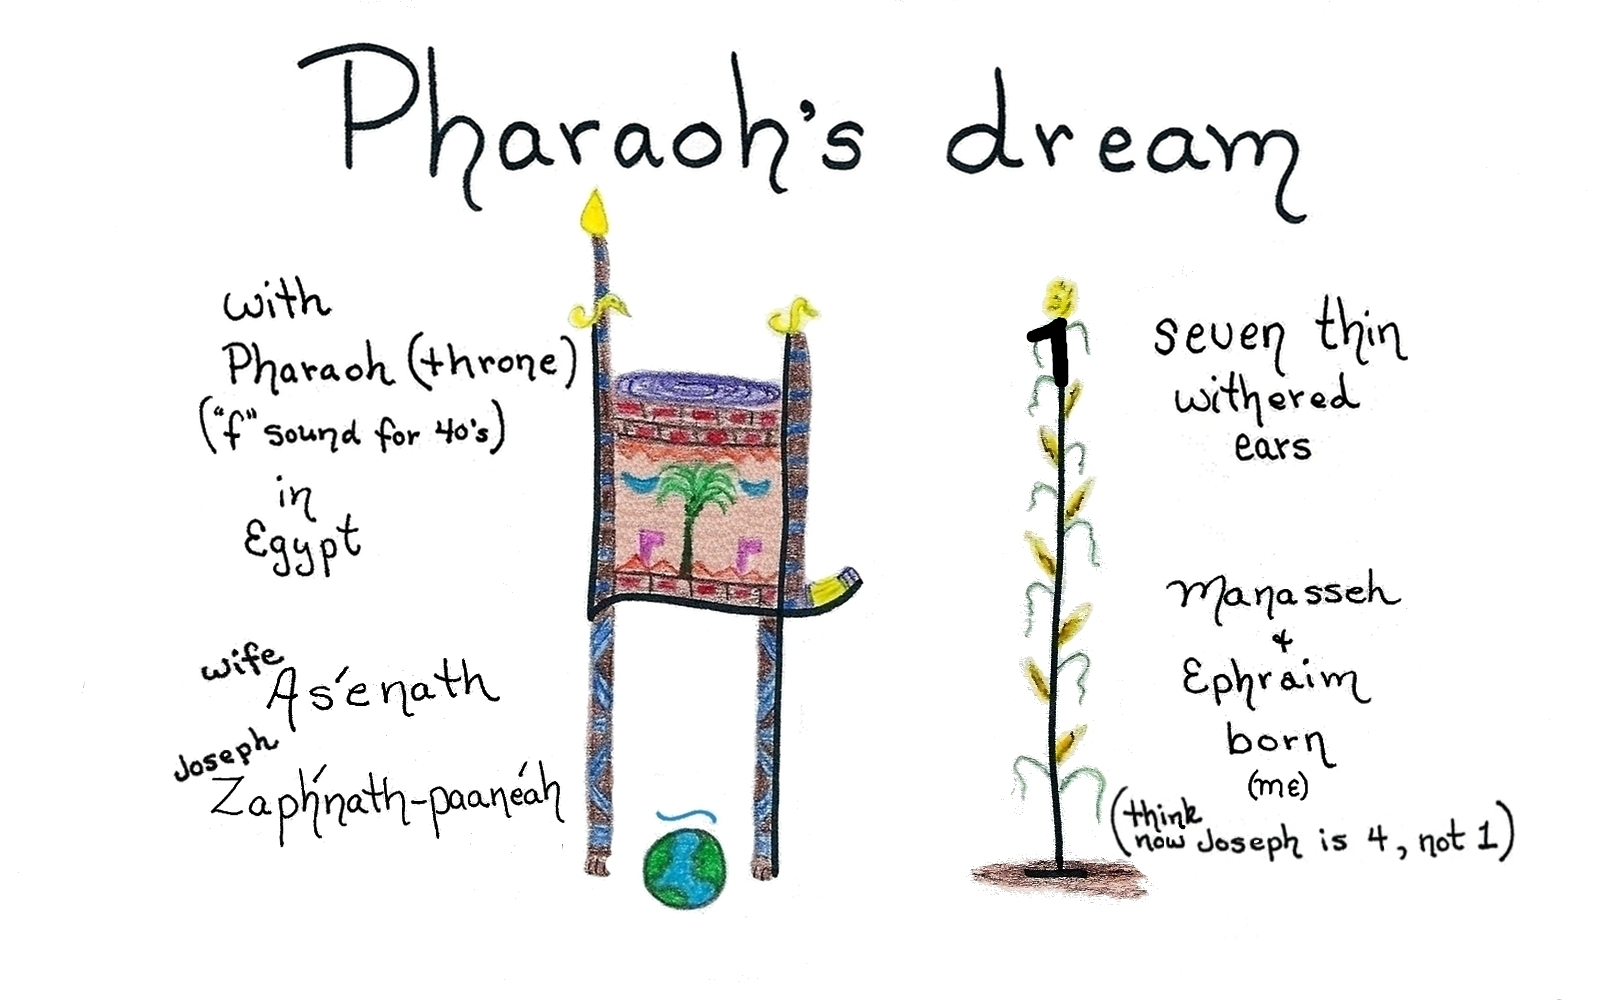 Pharaoh's dream
with
Pharaoh (throne)
("f" sound for 40's)
in
Egypt
wife
As'enath
Joseph
Zaph'nath-paane'ah
1
seven thin
withered
ears
Manasseh
+
Ephraim
born
(mε)
(think
now Joseph is 4, not 1)